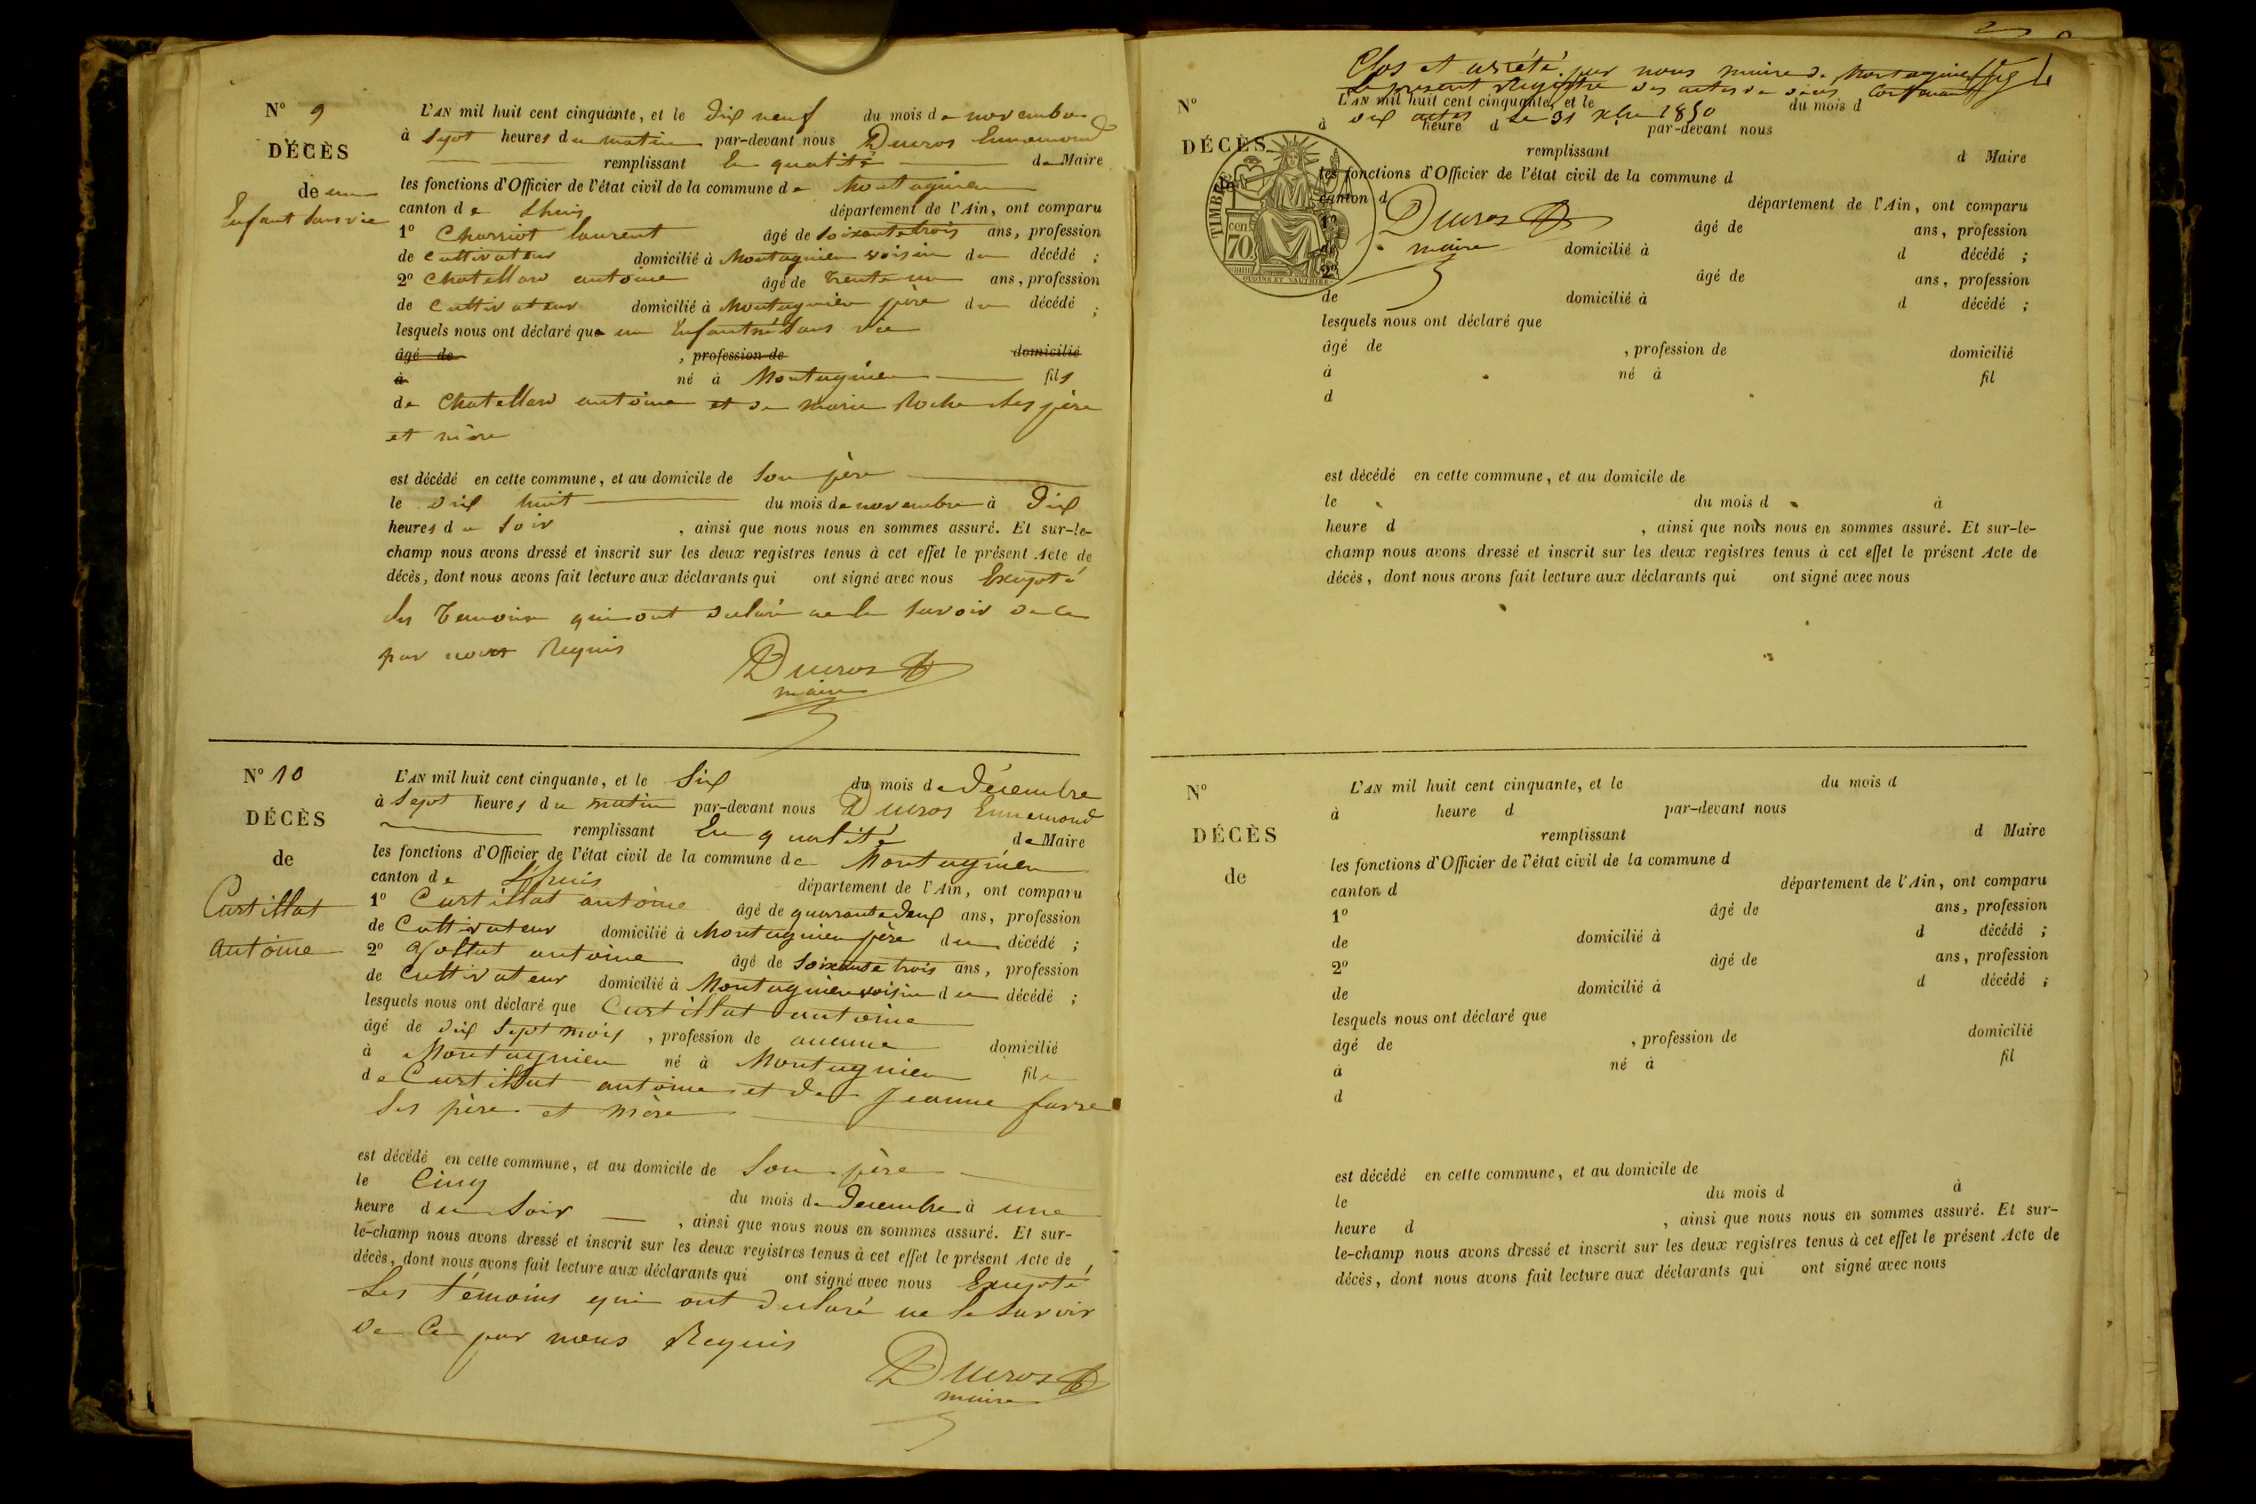 N° 9
DÉCÈS
de un
Enfant sans vie
L'AN mil huit cent cinquante, et le dix neuf du mois de novembre
à sept heures du matin par-devant nous Ducros Ennemond
remplissant en qualité de Maire
les fonctions d'Officier de l'état civil de la commune de Montagnieu
canton de Lhuis département de l'Ain, ont comparu
1° Charriot laurent âgé de soixante trois ans, profession
de cultivateur domicilié à Montagnieu voisin du décédé ;
2° Chatellard antoine âgé de trente un ans, profession
de cultivateur domicilié à Montagnieu père du décédé ;
lesquels nous ont déclaré que un Enfant né sans vie
âgé de , profession de domicilié
à né à Montagnieu fils
de Chatellard antoine et de marie Roche ses père
et mère
est décédé en cette commune, et au domicile de son père
le dix huit du mois de novembre à dix
heures du soir , ainsi que nous nous en sommes assuré. Et sur-le-
champ nous avons dressé et inscrit sur les deux registres tenus à cet effet le présent Acte de
décès, dont nous avons fait lecture aux déclarants qui ont signé avec nous Excepté
les Temoins qui ont déclaré ne le savoir de ce
par nous Requis
Ducros
maire
N° 10
DÉCÈS
de
Curtillat
antoine
L'AN mil huit cent cinquante, et le six du mois de décembre
à sept heures du matin par-devant nous Ducros Ennemond
remplissant En qualité de Maire
les fonctions d'Officier de l'état civil de la commune de Montagnieu
canton de Lhuis département de l'Ain, ont comparu
1° Curtillat antoine âgé de quarante deux ans, profession
de Cultivateur domicilié à Montagnieu père du décédé ;
2° antoine âgé de soixante trois ans, profession
de Cultivateur domicilié à Montagnieu voisin du décédé ;
lesquels nous ont déclaré que Curtillat antoine
âgé de dix sept mois , profession de aucune domicilié
à Montagnieu né à Montagnieu fils
de Curtillat antoine et de Jeanne favre
ses père et mère
est décédé en cette commune, et au domicile de son père
le Cinq du mois de Decembre à une
heure du soir , ainsi que nous nous en sommes assuré. Et sur-
le-champ nous avons dressé et inscrit sur les deux registres tenus à cet effet le présent Acte de
décès, dont nous avons fait lecture aux déclarants qui ont signé avec nous Excepté
Les témoins qui ont declaré ne le savoir
de Ce par nous Requis
Ducros
maire
Clos et arrété par nous maire de Montagnieu
Le présent Registre des actes de décès Contenant
dix actes Le 31 Xbre 1850
N°
DÉCÈS
L'AN mil huit cent cinquante, et le du mois d
à heure d par-devant nous
remplissant d Maire
les fonctions d'Officier de l'état civil de la commune d
canton d département de l'Ain, ont comparu
TIMBRE
cen
70
Ducros
maire
1° âgé de ans, profession
de domicilié à d décédé ;
2° âgé de ans, profession
de domicilié à d décédé ;
lesquels nous ont déclaré que
âgé de , profession de domicilié
à né à fil
d
est décédé en cette commune, et au domicile de
le du mois d à
heure d , ainsi que nous nous en sommes assuré. Et sur-le-
champ nous avons dressé et inscrit sur les deux registres tenus à cet effet le présent Acte de
décès, dont nous avons fait lecture aux déclarants qui ont signé avec nous
N°
DÉCÈS
de
L'AN mil huit cent cinquante, et le du mois d
à heure d par-devant nous
remplissant d Maire
les fonctions d'Officier de l'état civil de la commune d
canton d département de l'Ain, ont comparu
1° âgé de ans, profession
de domicilié à d décédé ;
2° âgé de ans, profession
de domicilié à d décédé ;
lesquels nous ont déclaré que
âgé de , profession de domicilié
à né à fil
d
est décédé en cette commune, et au domicile de
le du mois d à
heure d , ainsi que nous nous en sommes assuré. Et sur-
le-champ nous avons dressé et inscrit sur les deux registres tenus à cet effet le présent Acte de
décès, dont nous avons fait lecture aux déclarants qui ont signé avec nous